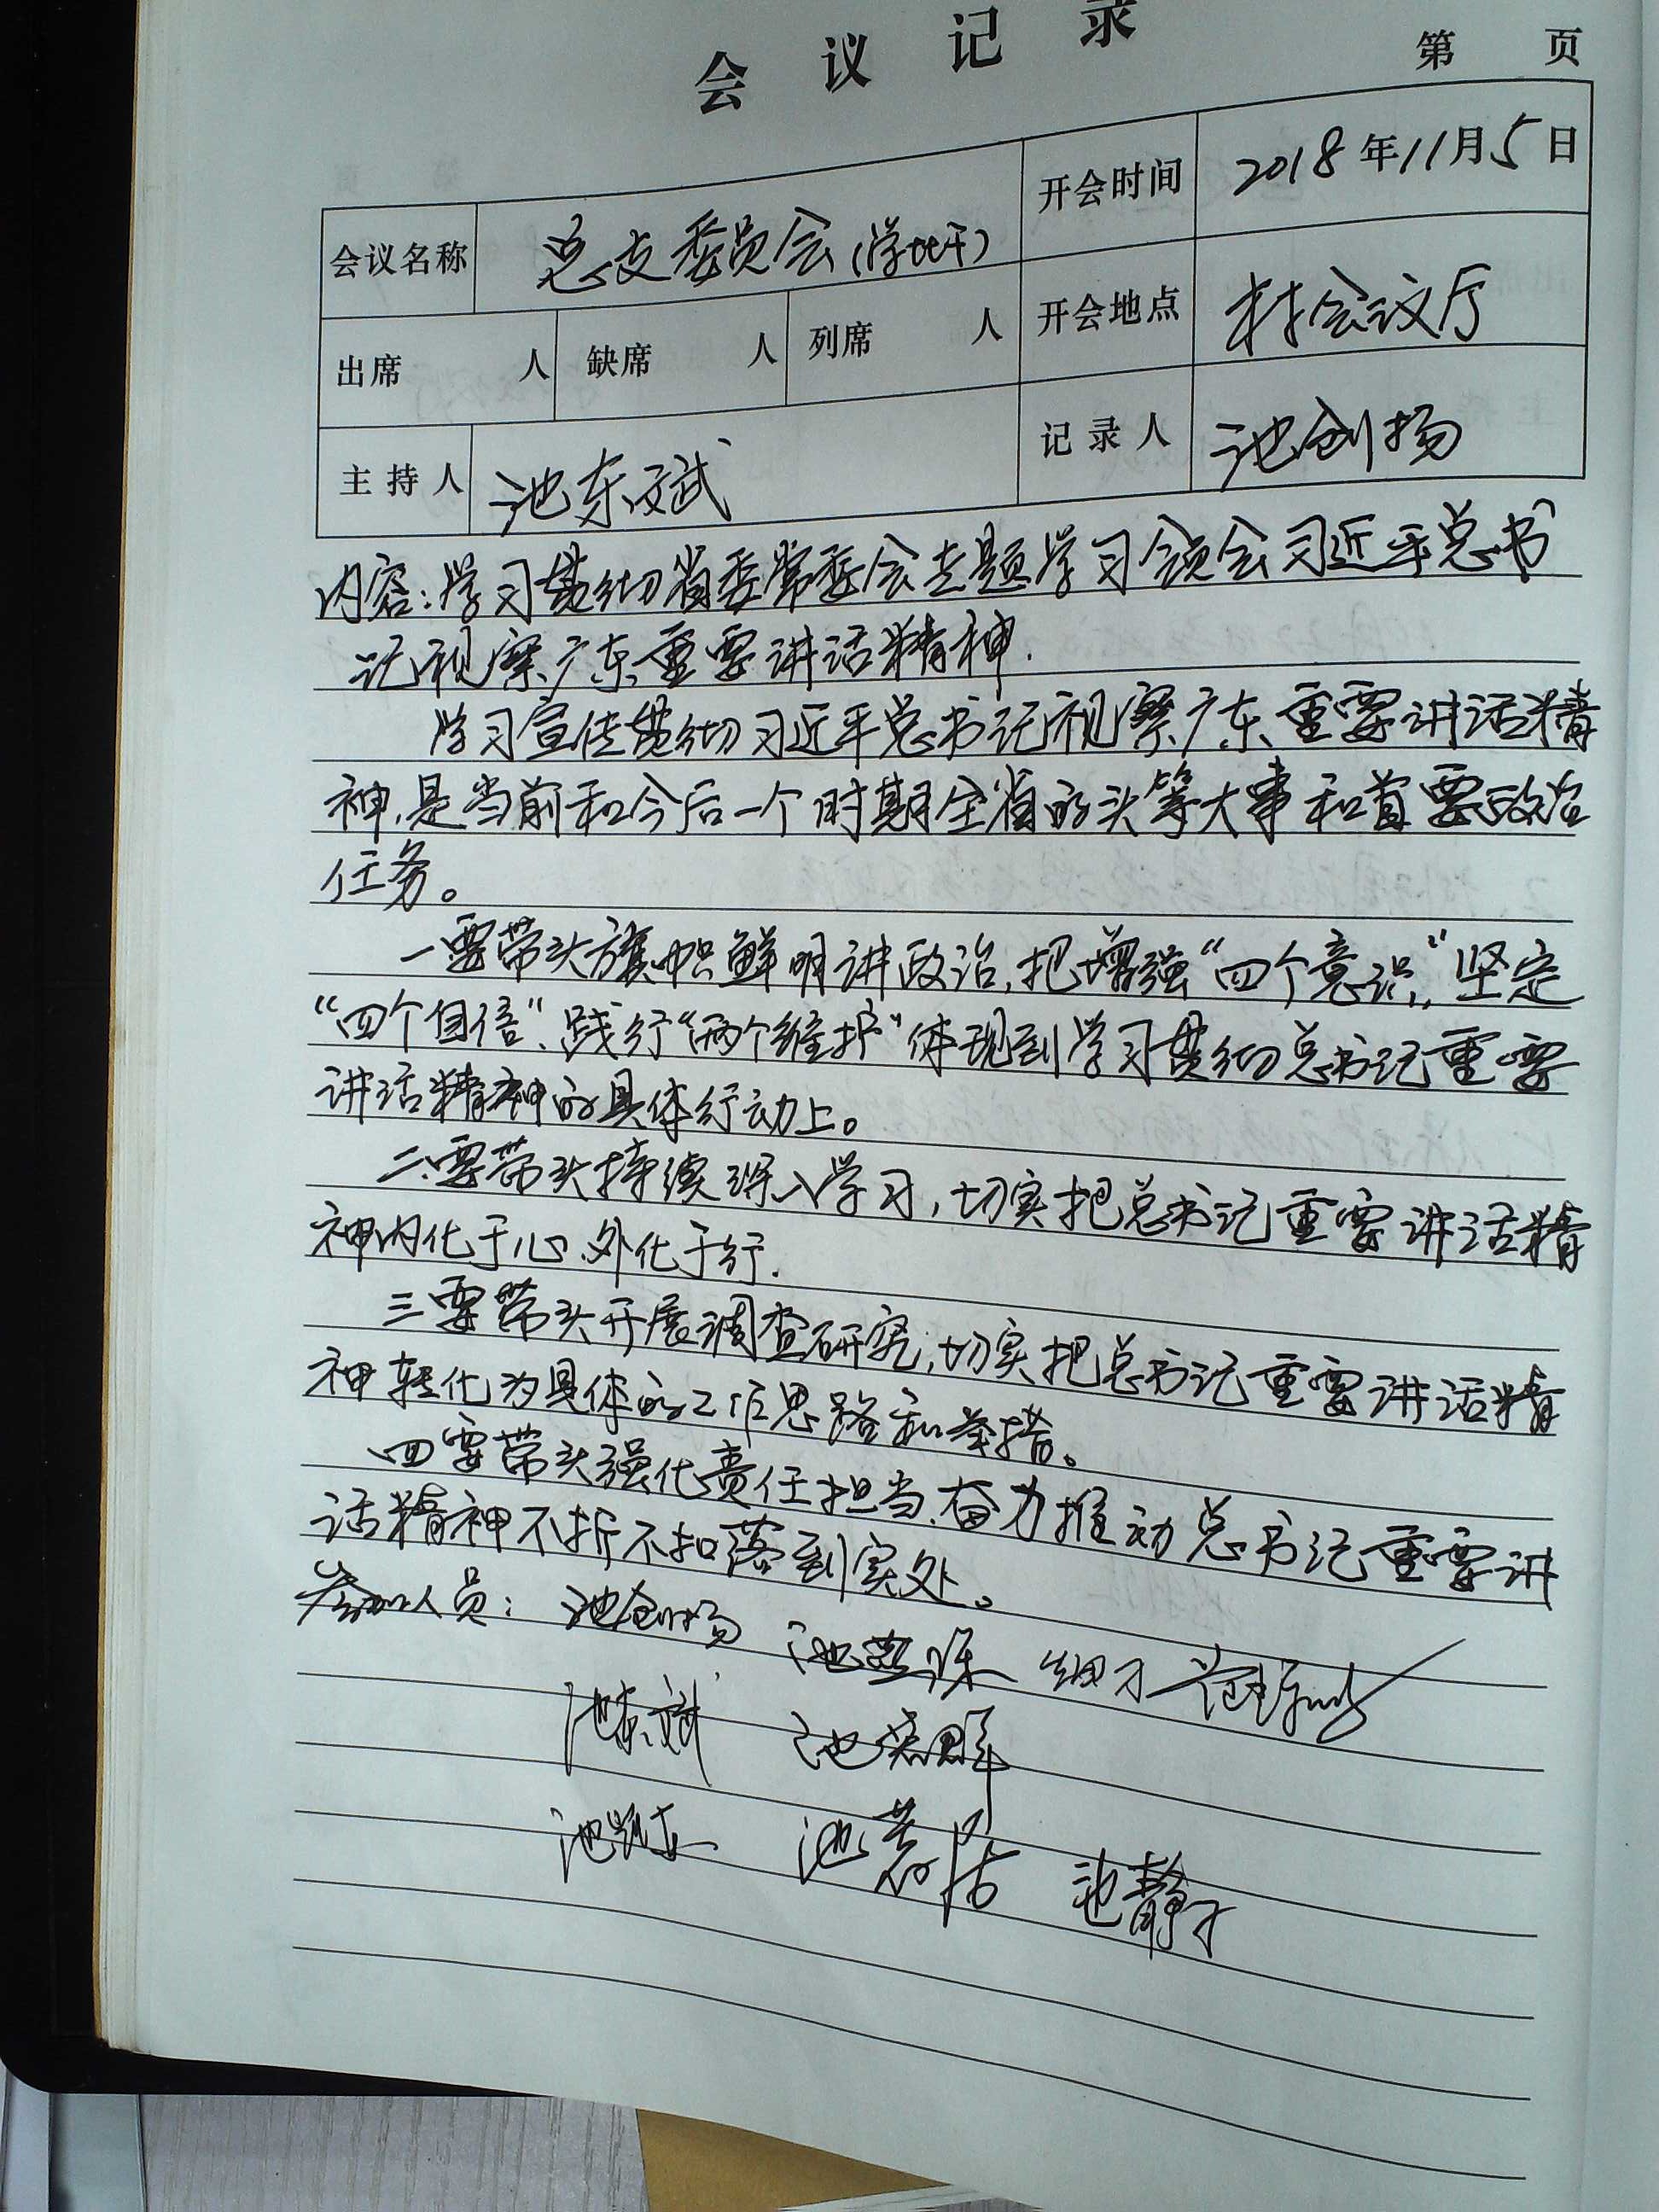 会议记录
第 页
会议名称 总支委员会(学习)
开会时间 2018年11月5日
出席 人 缺席 人 列席 人
开会地点 村会议厅
主持人 池东斌
记录人 池创扬
内容:学习贯彻省委常委会专题学习领会习近平总书
记视察广东重要讲话精神.
学习宣传贯彻习近平总书记视察广东重要讲话精
神,是当前和今后一个时期全省的头等大事和首要政治
任务。
一要带头旗帜鲜明讲政治,把增强“四个意识,”坚定
“四个自信”、践行“两个维护”体现到学习贯彻总书记重要
讲话精神的具体行动上。
二要带头持续深入学习,切实把总书记重要讲话精
神内化于心、外化于行.
三要带头开展调查研究,切实把总书记重要讲话精
神转化为具体的工作思路和举措。
四要带头强化责任担当、奋力推动总书记重要讲
话精神不折不扣落到实处。
参加人员: 池创扬
池东斌
池静